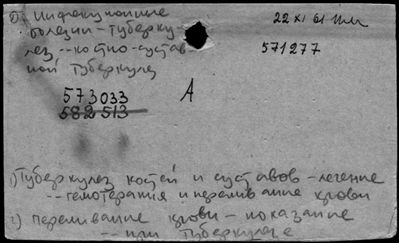 0) инфекционные
болезни - туберку-
лез -- костно-сустав
ной туберкулез
22 XI 61
571277
573033
582513
А
1) Туберкулез костей и суставов - лечение
-- гемотерапия и переливание крови
2) переливание крови - показание
-- при туберкулезе